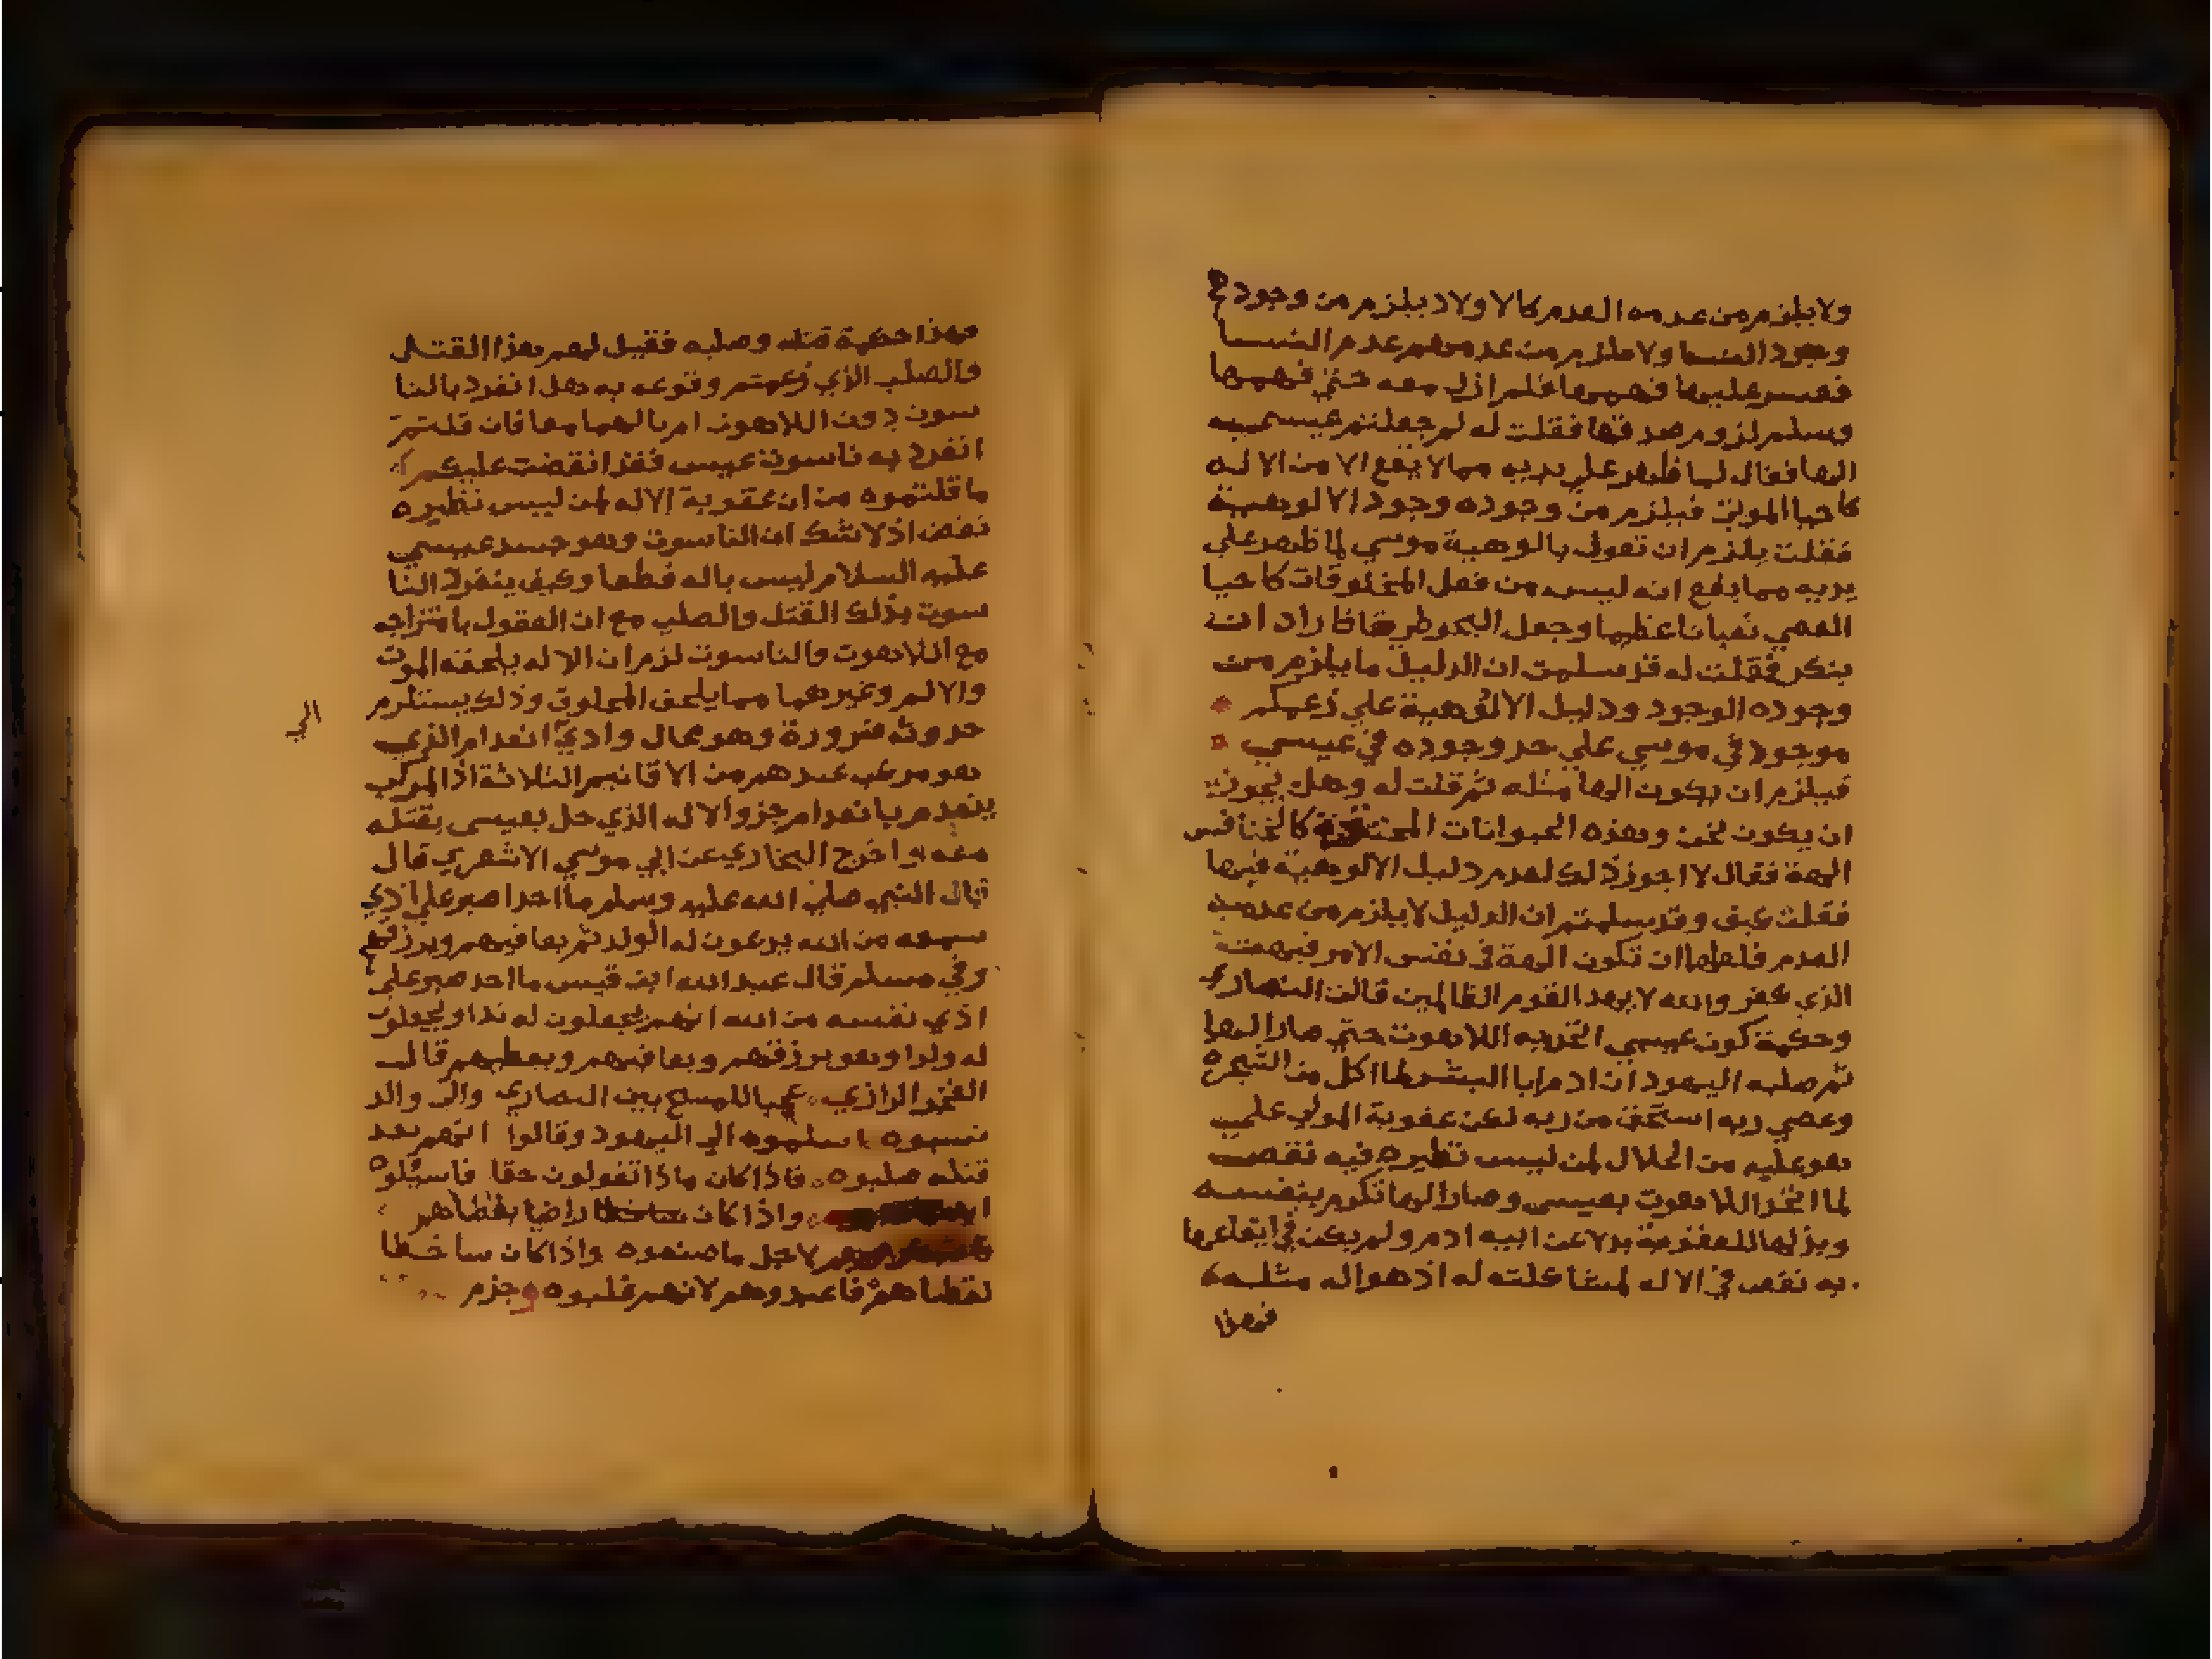 ولا يلزم من عدمه العدم كالاولاد يلزم من وجودهم
وجود النسا ولا يلزم من عدمهم عدم النسا
فعسر عليها فهمها فلم ازل معه حتي فهمها
وسلم لزوم صدقها فقلت له لم جعلتم عيسي
الها فقال لما ظهر علي يديه مما لا يقع الا من الاله
كاحيا الموتي فيلزم من وجوده وجود الالوهية
فقلت يلزم ان تقول بالوهية موسي لما ظهر علي
يديه مما يقع انه ليس من فعل المخلوقات كاحيا
العصي ثعبانا عظيما وجعل البحر طرقا فاراد ان
ينكر فقلت له قد سلمت ان الدليل ما يلزم من
وجوده الوجود ودليل الالوهية علي زعمكم
موجود في موسي علي حد وجوده في عيسي
فيلزم ان يكون الها مثله ثم قلت له وهل يجوز
ان يكون نحن وهذه الحيوانات المحتقرة كالخنافس
الهة فقال لا اجوز ذلك لعدم دليل الالوهية فيها
فقلت كيف وقد سلمتم ان الدليل لا يلزم من عدمه
العدم فلعلها ان تكون الهة في نفس الامر فبهت
الذي كفر والله لا يهد القوم الظالمين قالت النصاري
وحكمة كون عيسي اتحد به اللاهوت حتي صار الها
ثم صلبه اليهود ان ادم ابا البشر لما اكل من الشجرة
وعصي ربه استحق من ربه لكن عقوبة المولي علي
هو عليه من الجلال لمن ليس نظيره فيه نقص
لما اتحد اللاهوت بعيسي وصار الها تكرم بنفسه
وبذلها للعقوبة بدلا عن ابيه ادم ولم يكن في ايقاعها
به نقص في الاله لمشاكلته له اذ هو اله مثله
فهذا
فهذا حكمة قتله وصلبه فقيل لهم هذا القتل
والصلب الذي زعمتم وقوعه به هل انفرد بالنا
سوت دون اللاهوت ام نالهما معا فان قلتم
انفرد به ناسوت عيسي فقد انتقضت عليكم
ما قلتموه من ان عقوبة الاله لمن ليس نظيره
نقص اذ لا شك ان الناسوت وهو جسد عيسي
عليه السلام ليس باله قطعا وكيف ينفرد النا
سوت بذلك القتل والصلب مع ان القول بامتزاجه
مع اللاهوت والناسوت لزم ان الاله يلحقه الموت
والالم وغيرهما مما يلحق المخلوق وذلك يستلزم
حدوثه ضرورة وهو محال وادي انعدام الذي
الي
هو مركب عندهم من الاقانيم الثلاثة اذ المركب
ينعدم بانعدام جزو الاله الذي حل بعيسي بقتله
معه واخرج البخاري عن ابي موسي الاشعري قال
قال النبي صلي الله عليه وسلم ما احد اصبر علي اذي
سمعه من الله يدعون له الولد ثم يعافيهم ويرزقهم
وفي مسلم قال عبد الله ابن قيس ما احد صبر علي
اذي نفسه من الله انهم يجعلون له ندا ويجعلون
له ولدا وهو يرزقهم ويعافيهم ويعطيهم قال
الفخر الرازي عجبا للمسيح بين النصاري والي والد
نسبوه اسلموه الي اليهود وقالوا انهم بعد
قتله صلبوه فاذا كان ماذا تقولون حقا فاسئلوه
واذا كان ساخطا راضيا بقضاهم
لاجل ما صنعوه واذا كان ساخطا
بقضاهم فاعبدوهم لانهم غلبوه وجزم